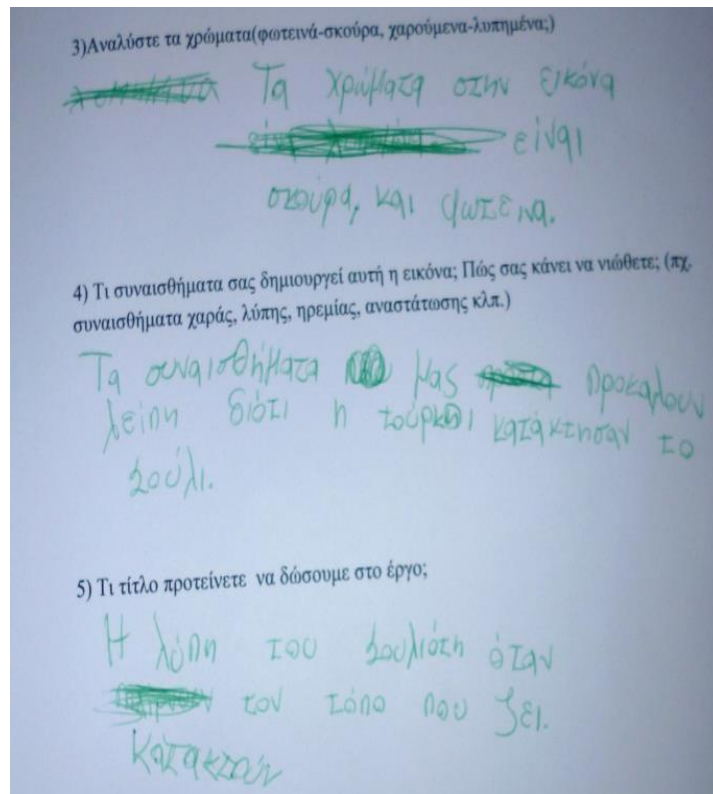 3)Αναλύστε τα χρώματα(φωτεινά-σκούρα, χαρούμενα-λυπημένα;)
Τα χρώματα στην εικόνα
είναι
σκούρα, και φωτεινα.
4) Τι συναισθήματα σας δημιουργεί αυτή η εικόνα; Πώς σας κάνει να νιώθετε; (πχ.
συναισθήματα χαράς, λύπης, ηρεμίας, αναστάτωσης κλπ.)
Τα συναισθήματα μας προκαλουν
λείπη διότι η τούρκοι κατάκτησαν το
Σούλι.
5) Τι τίτλο προτείνετε να δώσουμε στο έργο;
Η λύπη του Σουλιότη όταν
τον τόπο που ζει.
κατακτούν